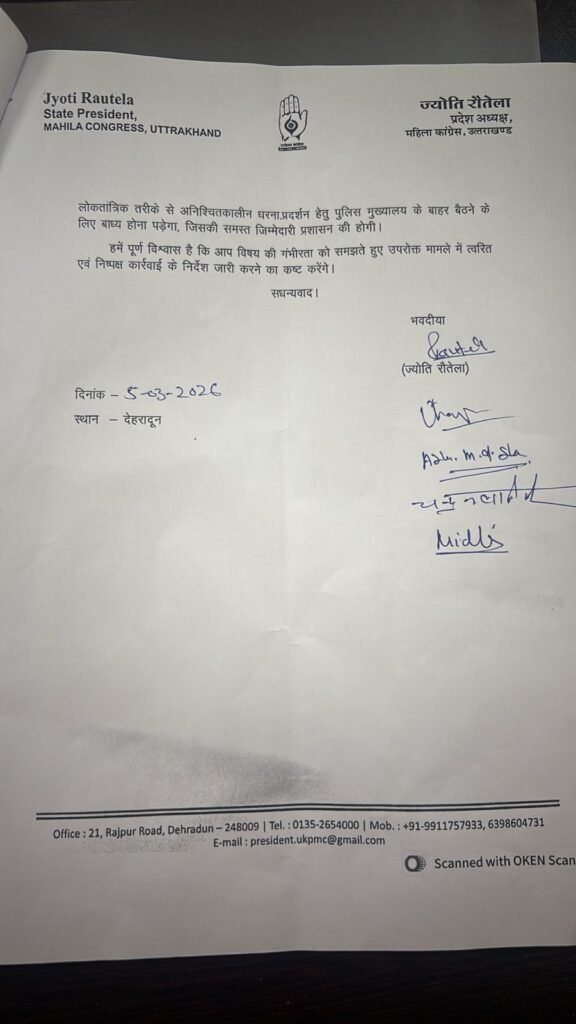 Jyoti Rautela
State President,
MAHILA CONGRESS, UTTRAKHAND
ज्योति रौतेला
प्रदेश अध्यक्ष,
महिला कांग्रेस, उत्तराखण्ड
लोकतांत्रिक तरीके से अनिश्चितकालीन धरना.प्रदर्शन हेतु पुलिस मुख्यालय के बाहर बैठने के
लिए बाध्य होना पड़ेगा, जिसकी समस्त जिम्मेदारी प्रशासन की होगी।
हमें पूर्ण विश्वास है कि आप विषय की गंभीरता को समझते हुए उपरोक्त मामले में त्वरित
एवं निष्पक्ष कार्रवाई के निर्देश जारी करने का कष्ट करेंगे।
सधन्यवाद।
भवदीया
(ज्योति रौतेला)
दिनांक – 5-03-2026
स्थान – देहरादून
Office : 21, Rajpur Road, Dehradun – 248009 | Tel. : 0135-2654000 | Mob. : +91-9911757933, 6398604731
E-mail : president.ukpmc@gmail.com
Scanned with OKEN Scan